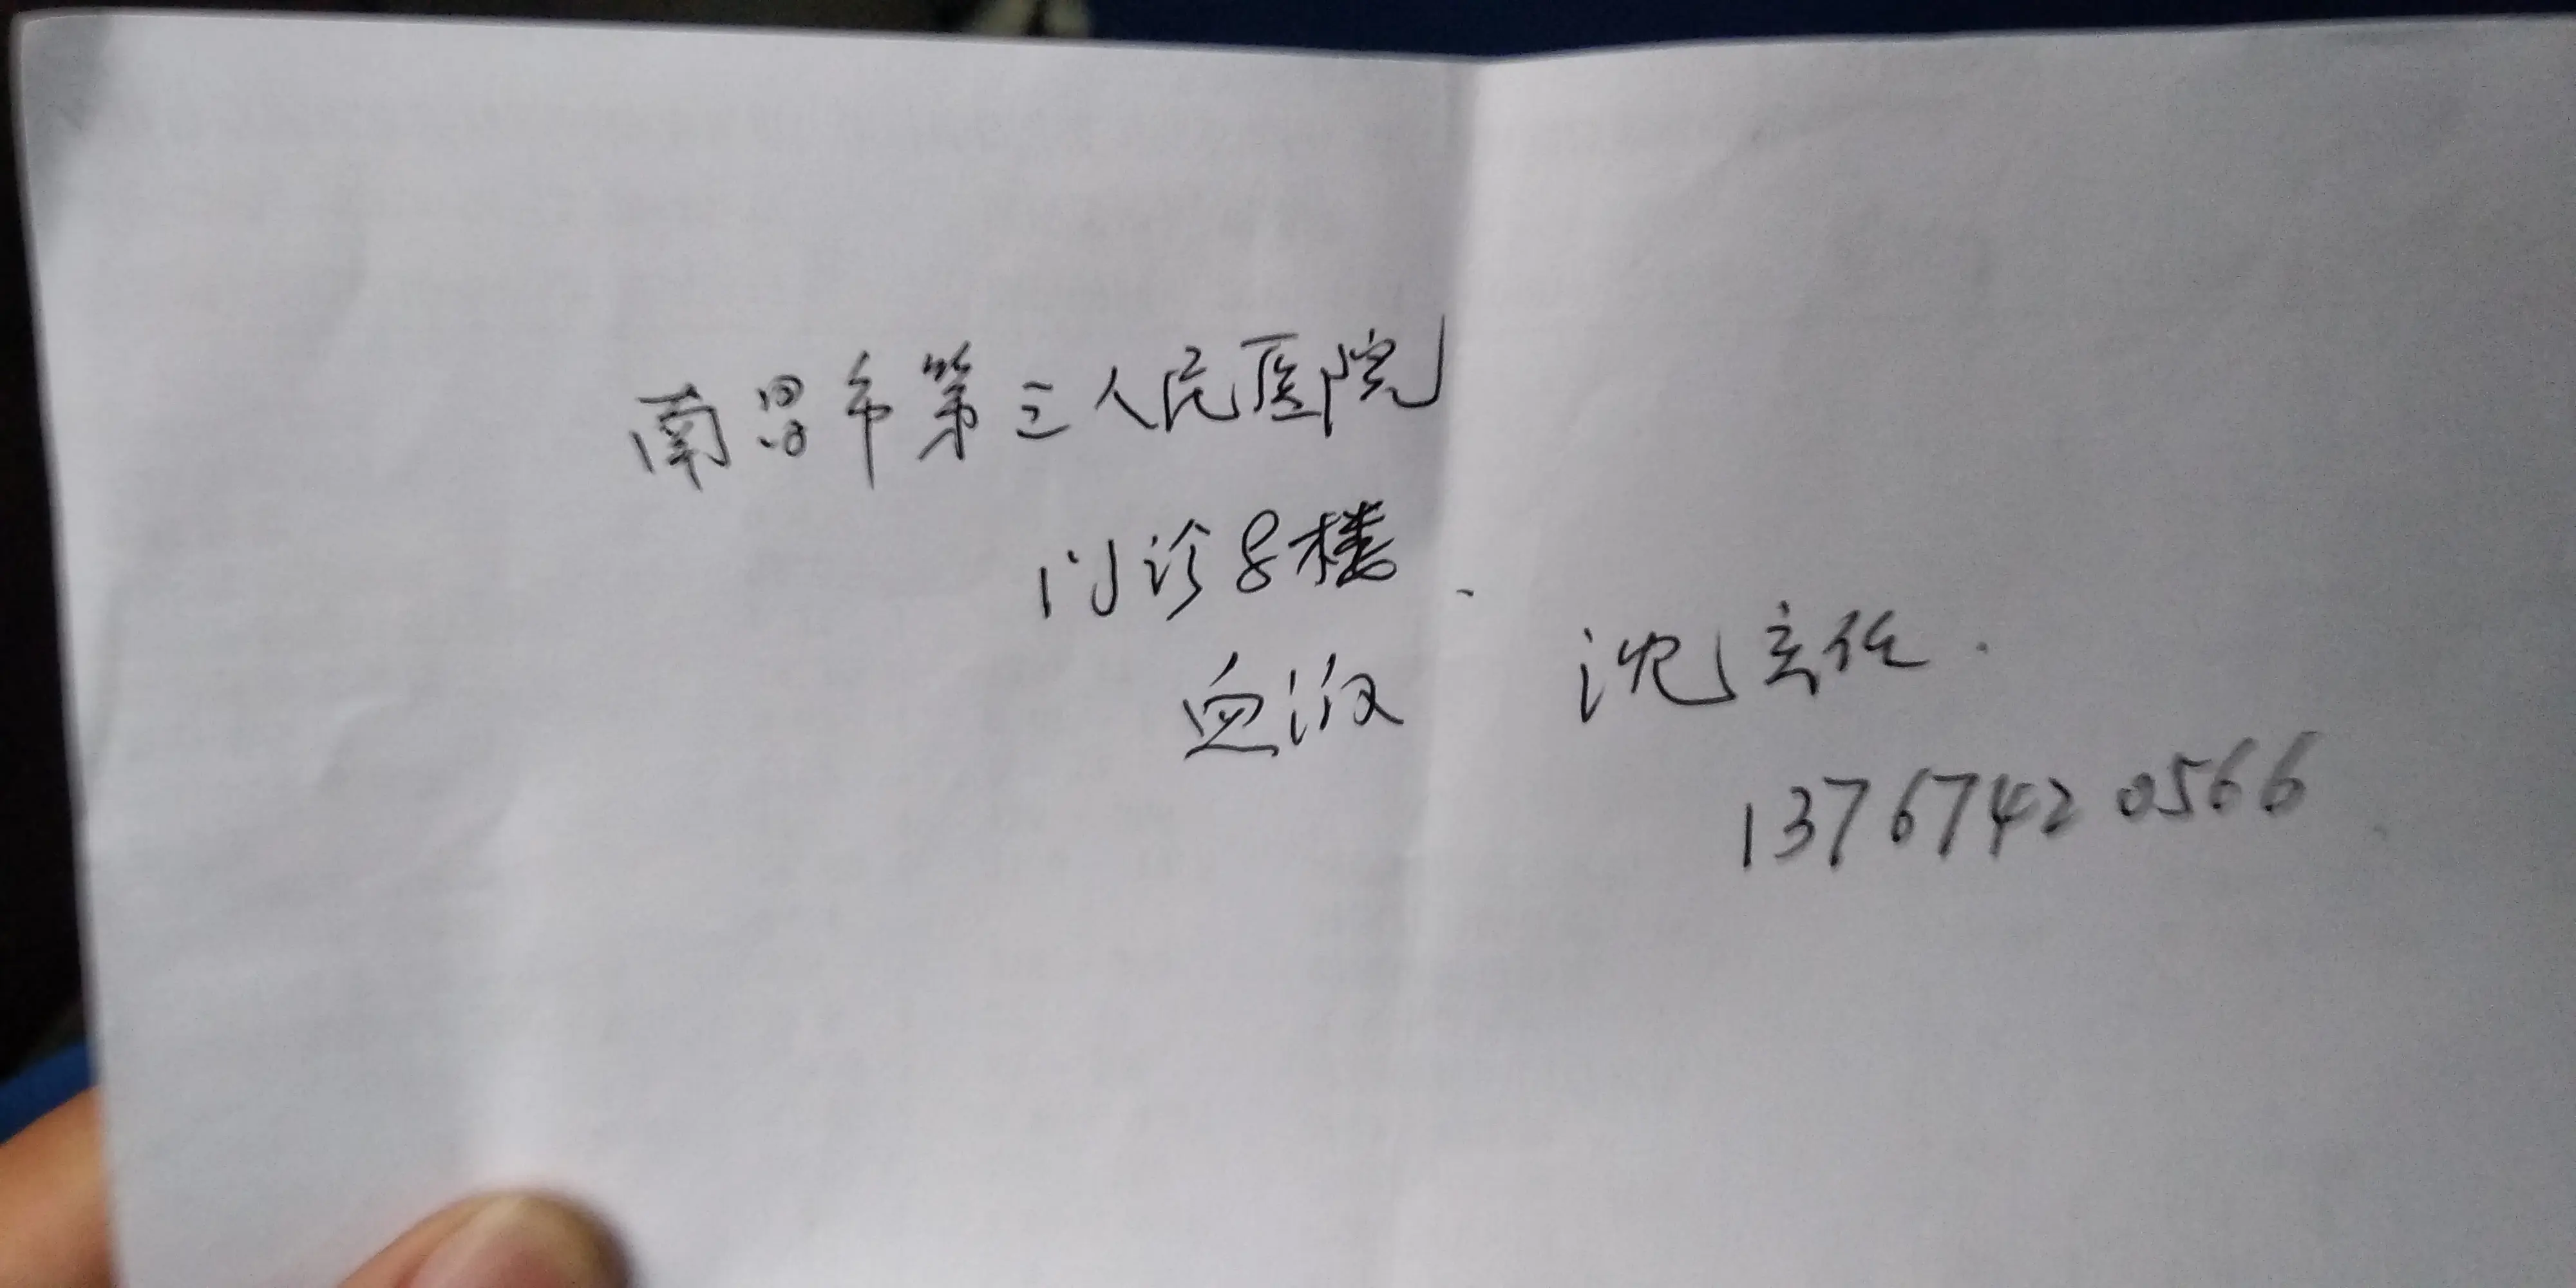 南昌市第三人民医院
门诊8楼.
血液 沈主任.
13767420566